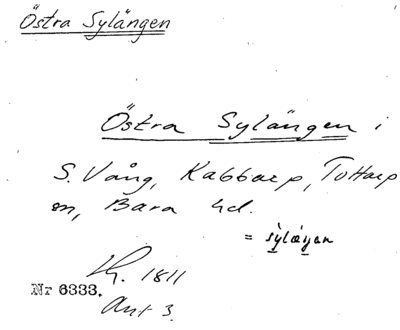 Östra Sylängen
Östra Sylängen i
S. Vång, Kabbarp, Tottarp
sn, Bara hd.
= sylæŋan
1811
Nr 6333.
Akt 3.